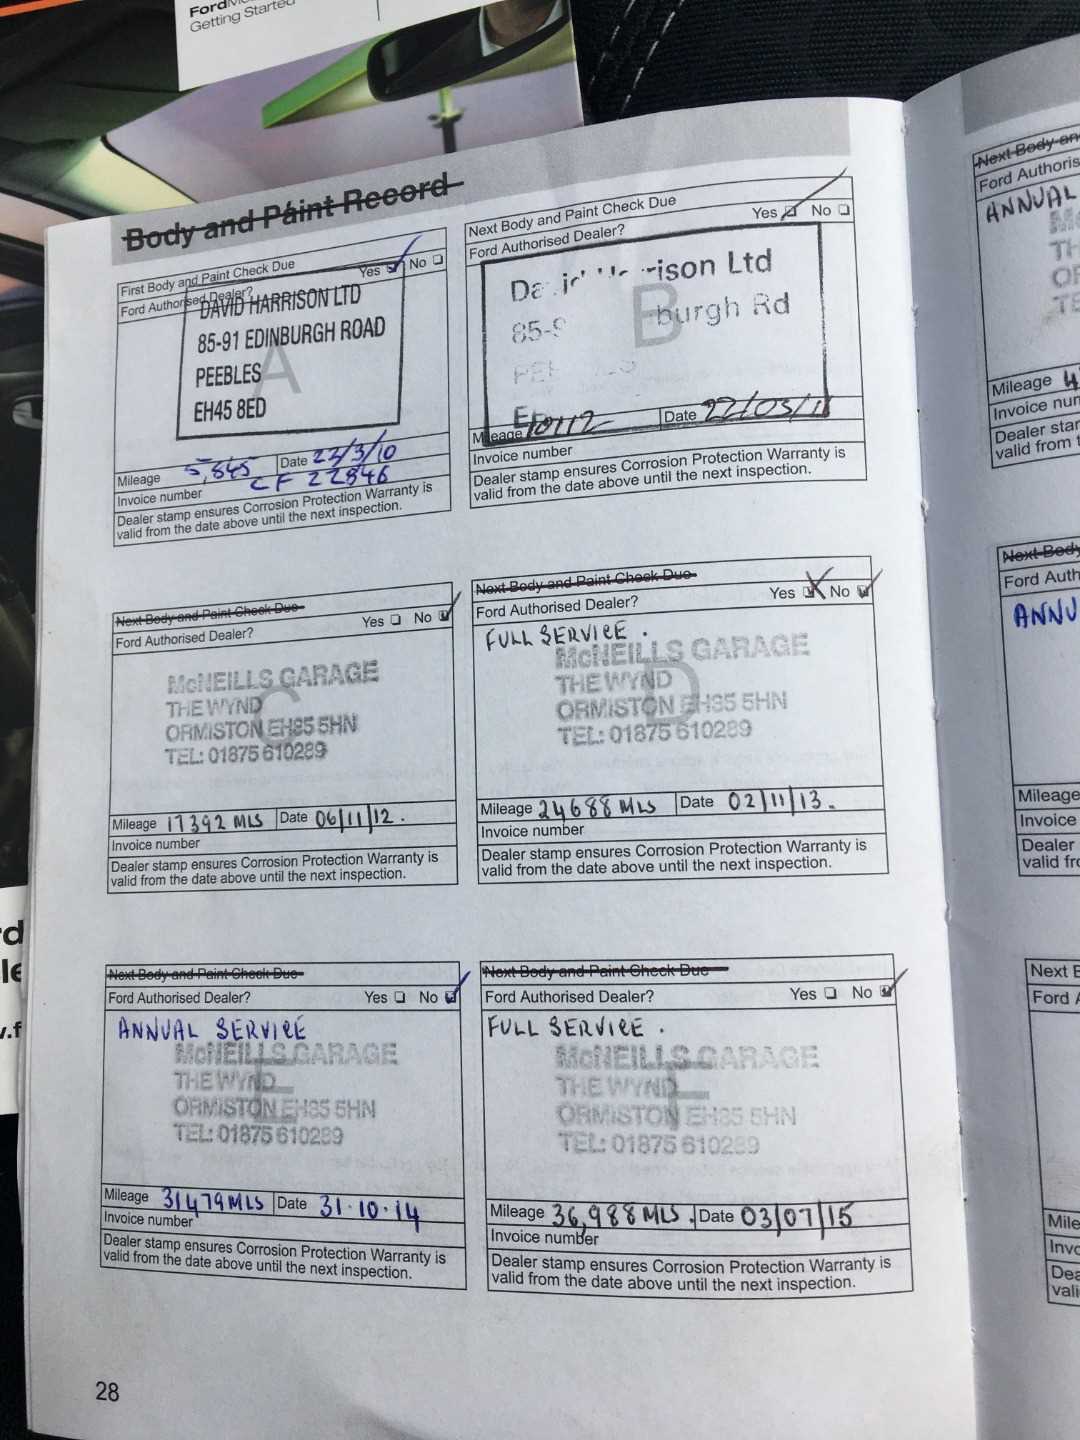 Ford
Getting Started
Body and Paint Record
First Body and Paint Check Due
Ford Authorised Dealer? Yes No
DAVID HARRISON LTD
85-91 EDINBURGH ROAD
PEEBLES
EH45 8ED
A
Mileage 5,845 Date 22/3/10
Invoice number CF 22846
Dealer stamp ensures Corrosion Protection Warranty is
valid from the date above until the next inspection.
Next Body and Paint Check Due
Ford Authorised Dealer? Yes No
rison Ltd
burgh Rd
B
Mileage 10112 Date 22/03/11
Invoice number
Dealer stamp ensures Corrosion Protection Warranty is
valid from the date above until the next inspection.
Next Body and Paint Check Due
Ford Authorised Dealer? Yes No
McNEILLS GARAGE
THE WYND
ORMISTON EH35 5HN
TEL: 01875 610289
C
Mileage 17392 MLS Date 06/11/12.
Invoice number
Dealer stamp ensures Corrosion Protection Warranty is
valid from the date above until the next inspection.
Next Body and Paint Check Due
Ford Authorised Dealer? Yes No
FULL SERVICE.
McNEILLS GARAGE
THE WYND
ORMISTON EH35 5HN
TEL: 01875 610289
D
Mileage 24688 MLS Date 02/11/13.
Invoice number
Dealer stamp ensures Corrosion Protection Warranty is
valid from the date above until the next inspection.
Next Body and Paint Check Due
Ford Authorised Dealer? Yes No
ANNUAL SERVICE
McNEILLS GARAGE
THE WYND
ORMISTON EH35 5HN
TEL: 01875 610289
E
Mileage 31479 MLS Date 31.10.14
Invoice number
Dealer stamp ensures Corrosion Protection Warranty is
valid from the date above until the next inspection.
Next Body and Paint Check Due
Ford Authorised Dealer? Yes No
FULL SERVICE.
McNEILLS GARAGE
THE WYND
ORMISTON EH35 5HN
TEL: 01875 610289
F
Mileage 36,988 MLS. Date 03/07/15
Invoice number
Dealer stamp ensures Corrosion Protection Warranty is
valid from the date above until the next inspection.
28
Next Body an
Ford Authoris
ANNUAL
Mileage 4
Invoice num
Dealer star
valid from t
Next Body
Ford Auth
ANNU
Mileage
Invoice
Dealer
valid fr
Next B
Ford A
Mile
Invo
Dea
vali